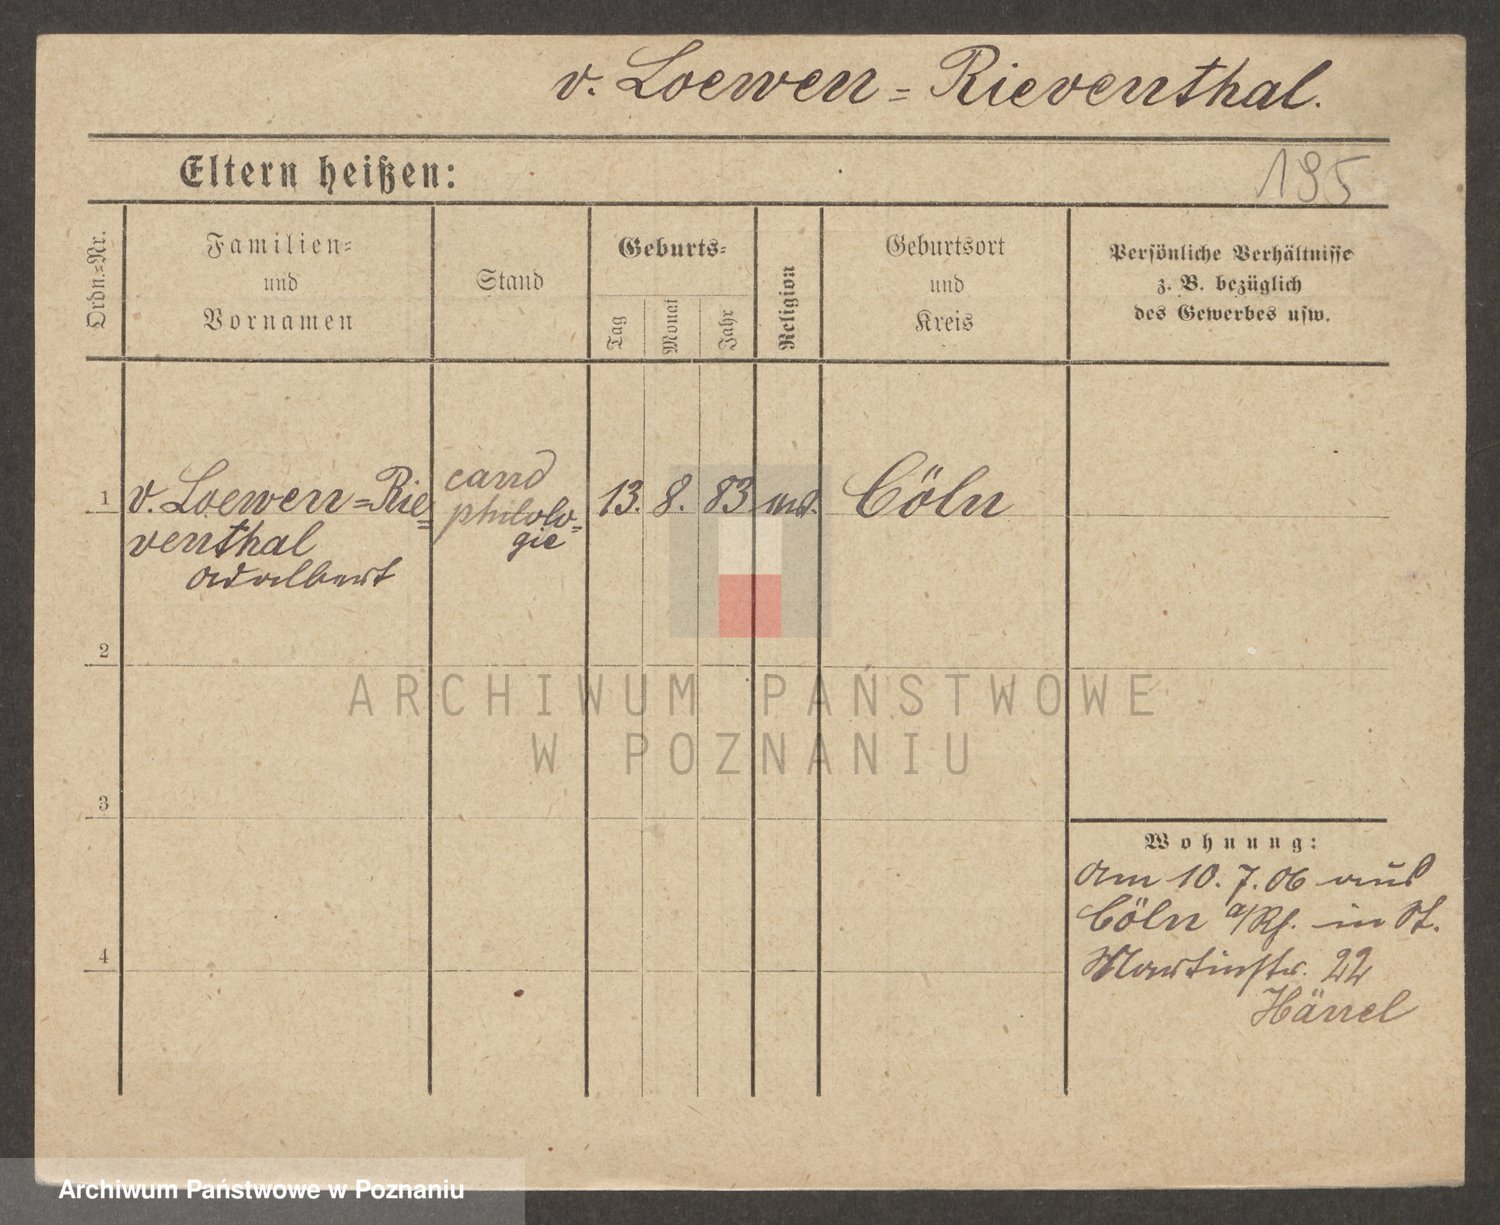 v. Loewen = Rieventhal.
Eltern heißen:
195
Ordn.=Nr.
Familien=
und
Vornamen
Stand
Geburts=
Tag
Monat
Jahr
Religion
Geburtsort
und
Kreis
Persönliche Verhältnisse
z. B. bezüglich
des Gewerbes usw.
1
v. Loewen=Rie=
venthal
Adalbert
cand
philolo=
gie
13. 8. 83
Cöln
2
ARCHIWUM PAŃSTWOWE
W POZNANIU
3
Wohnung:
Am 10. 7. 06 aus
Cöln a/Rh. in St.
4
Martinstr. 22
Hänel
Archiwum Państwowe w Poznaniu